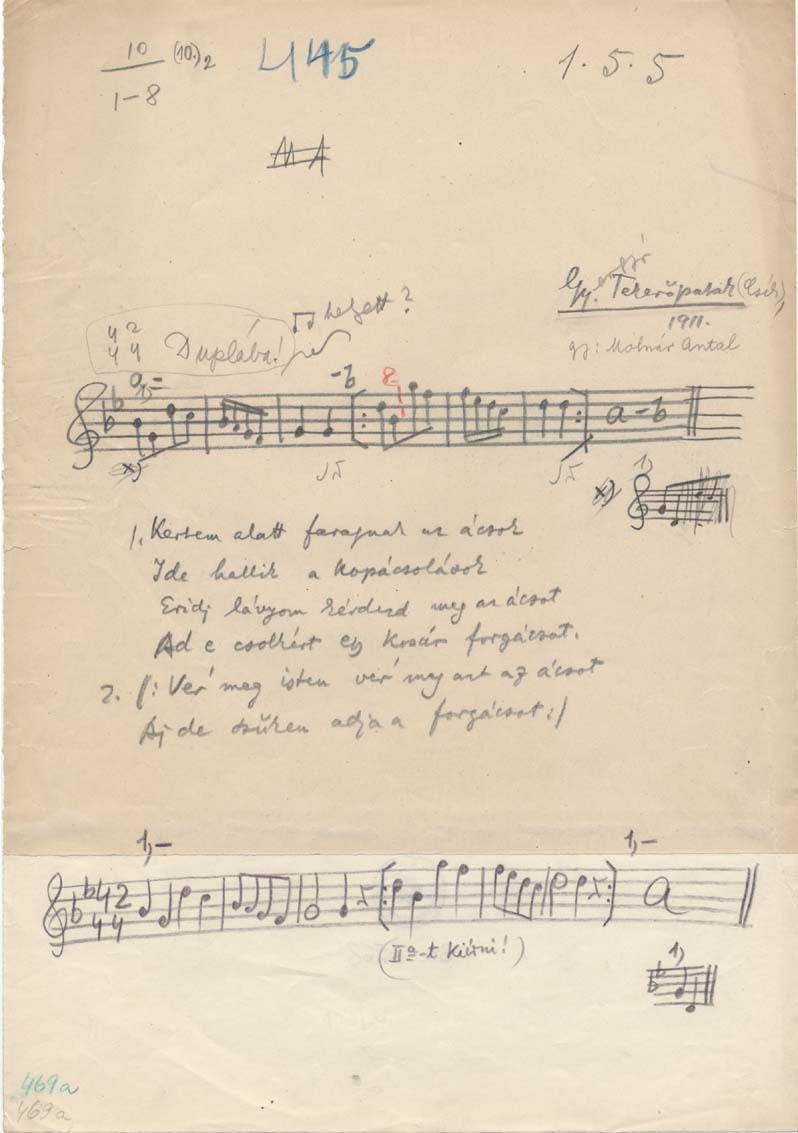 10 (10.)2 445 1. 5. 5
1–8
AA
Gy. Tekerőpatak (Csík),
1911.
gy: Molnár Antal
4 2
4 4 Duplába! helyett?
a 1,– –b 8
a–b
x) 1)
1. Kertem alatt faragnak az ácsok
Ide hallik a kopácsolások
Eridj lányom kérdezd meg az ácsot
Ad e csolkért egy kosár forgácsot.
2. /: Ver meg isten ver meg azt az ácsot
Aj de szűken adja a forgácsot :/
1,– 1,–
4 2
4 4 a
(IIª-t kiírni!) 1)
469a
469a